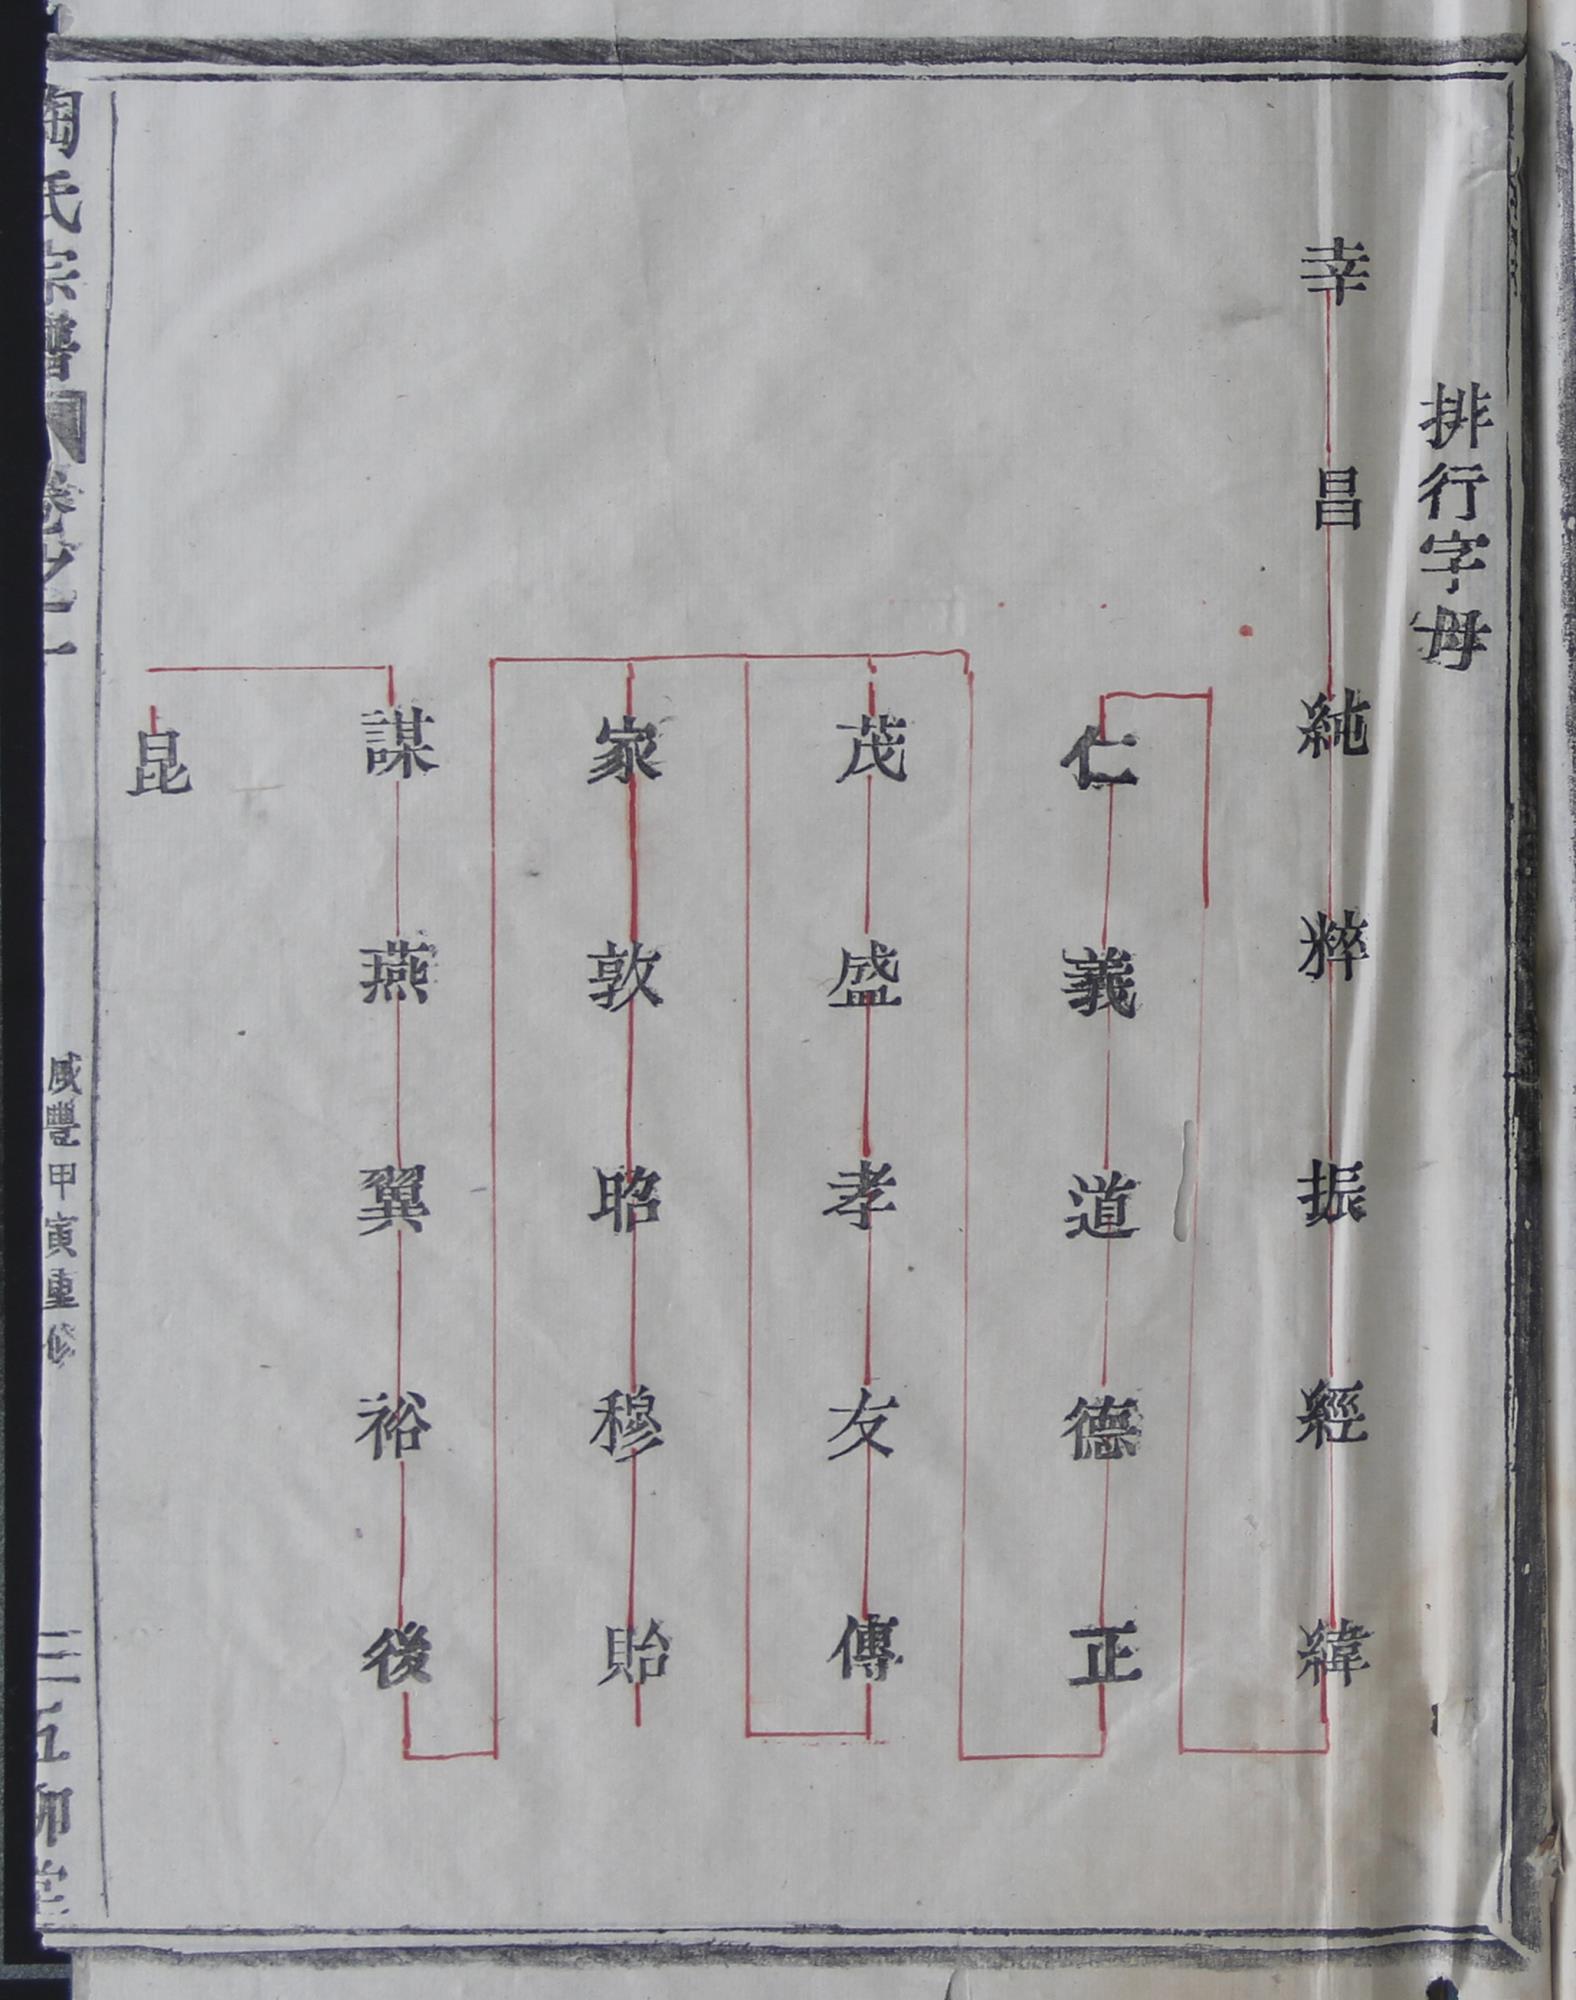 排行字母
幸昌純粹振經緯
仁義道德正
茂盛孝友傳
家敦昭穆貽
謀燕翼裕後
昆
陶氏宗譜 卷之一 咸豐甲寅重修 三五柳堂